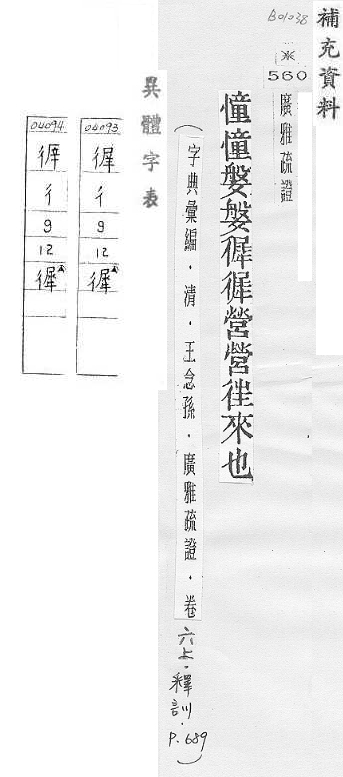 補充資料
B01038
※
560
廣雅疏證
憧憧媻媻徲徲營營往來也
(字典彙編．清．王念孫．廣雅疏證．卷六上．釋訓．P.689)
異體字表
04093
彳
9
12
04094
彳
9
12